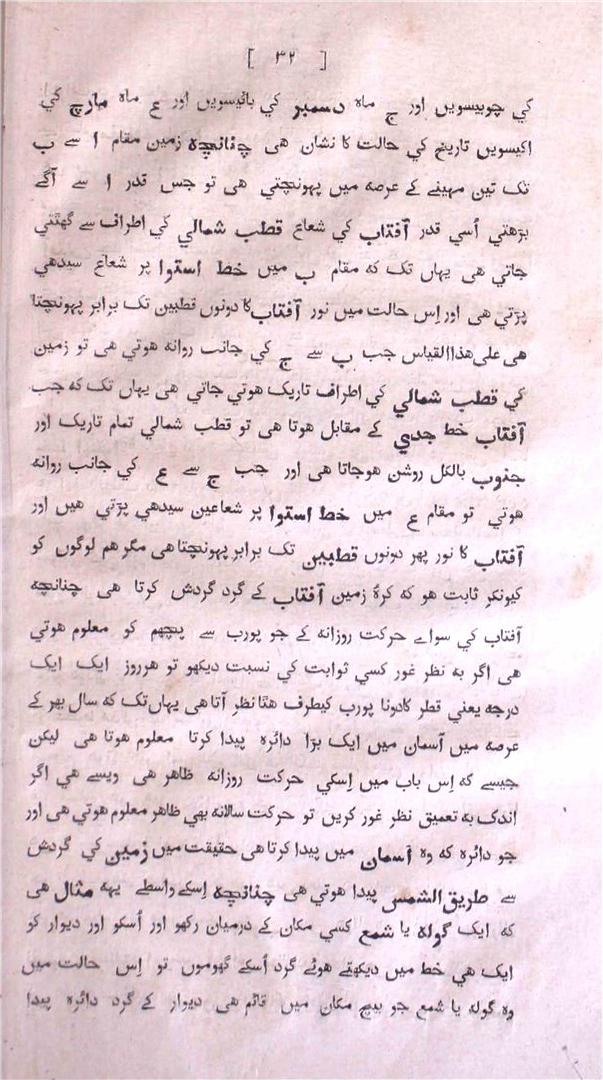 [ ٣٢ ]
کي چوبیسویں اور ج ماہ دسمبر کي بائیسویں اور ع ماہ مارچ کي
اکیسویں تاریخ کي حالت کا نشان هی چنانچہ زمین مقام ا سے ب
تک تین مہینے کے عرصہ میں پہونچتي هی تو جس قدر ا سے آگے
بڑهتي اُسي قدر آفتاب کي شعاع قطب شمالي کي اطراف سے گهٹتي
جاتي هی یہاں تک کہ مقام ب میں خط استوا پر شعاع سیدهي
پڑتي هی اور اِس حالت میں نور آفتاب کا دونوں قطبین تک برابر پہونچتا
هی علی هذاالقیاس جب ب سے ج کي جانب روانہ هوتي هی تو زمین
کي قطب شمالي کي اطراف تاریک هوتي جاتي هی یہاں تک کہ جب
آفتاب خط جدي کے مقابل هوتا هی تو قطب شمالي تمام تاریک اور
جنوب بالکل روشن هوجاتا هی اور جب ج سے ع کي جانب روانہ
هوتي تو مقام ع میں خط استوا پر شعاعین سیدهي پڑتي هیں اور
آفتاب کا نور پهر دونوں قطبین تک برابر پہونچتا هی مگر هم لوگوں کو
کیونکر ثابت هو کہ کرۂ زمین آفتاب کے گرد گردش کرتا هی چنانچہ
آفتاب کی سواے حرکت روزانہ کے جو پورب سے پچهم کو معلوم هوتي
هی اگر بہ نظر غور کسي ثوابت کي نسبت دیکهو تو هرروز ایک ایک
درجہ یعني قطر کا دونا پورب کیطرف هٹتا نظر آتا هی یہاں تک کہ سال بهر کے
عرصہ میں آسمان میں ایک بڑا دائرہ پیدا کرتا معلوم هوتا هی لیکن
جیسے کہ اِس باب میں اِسکي حرکت روزانہ ظاهر هی ویسے هي اگر
اندک بہ تعمیق نظر غور کریں تو حرکت سالانہ بهي ظاهر معلوم هوتي هی اور
جو دائرہ کہ وہ آسمان میں پیدا کرتا هی حقیقت میں زمین کي گردش
سے طریق الشمس پیدا هوتي هی چنانچہ اِسکے واسطے یہہ مثال هی
کہ ایک گولہ یا شمع کسي مکان کے درمیان رکهو اور اُسکو اور دیوار کو
ایک هي خط میں دیکهتے هوئے گرد اُسکے گهوموں تو اِس حالت میں
وہ گولہ یا شمع جو بیچ مکان میں قائم هی دیوار کے گرد دائرہ پیدا